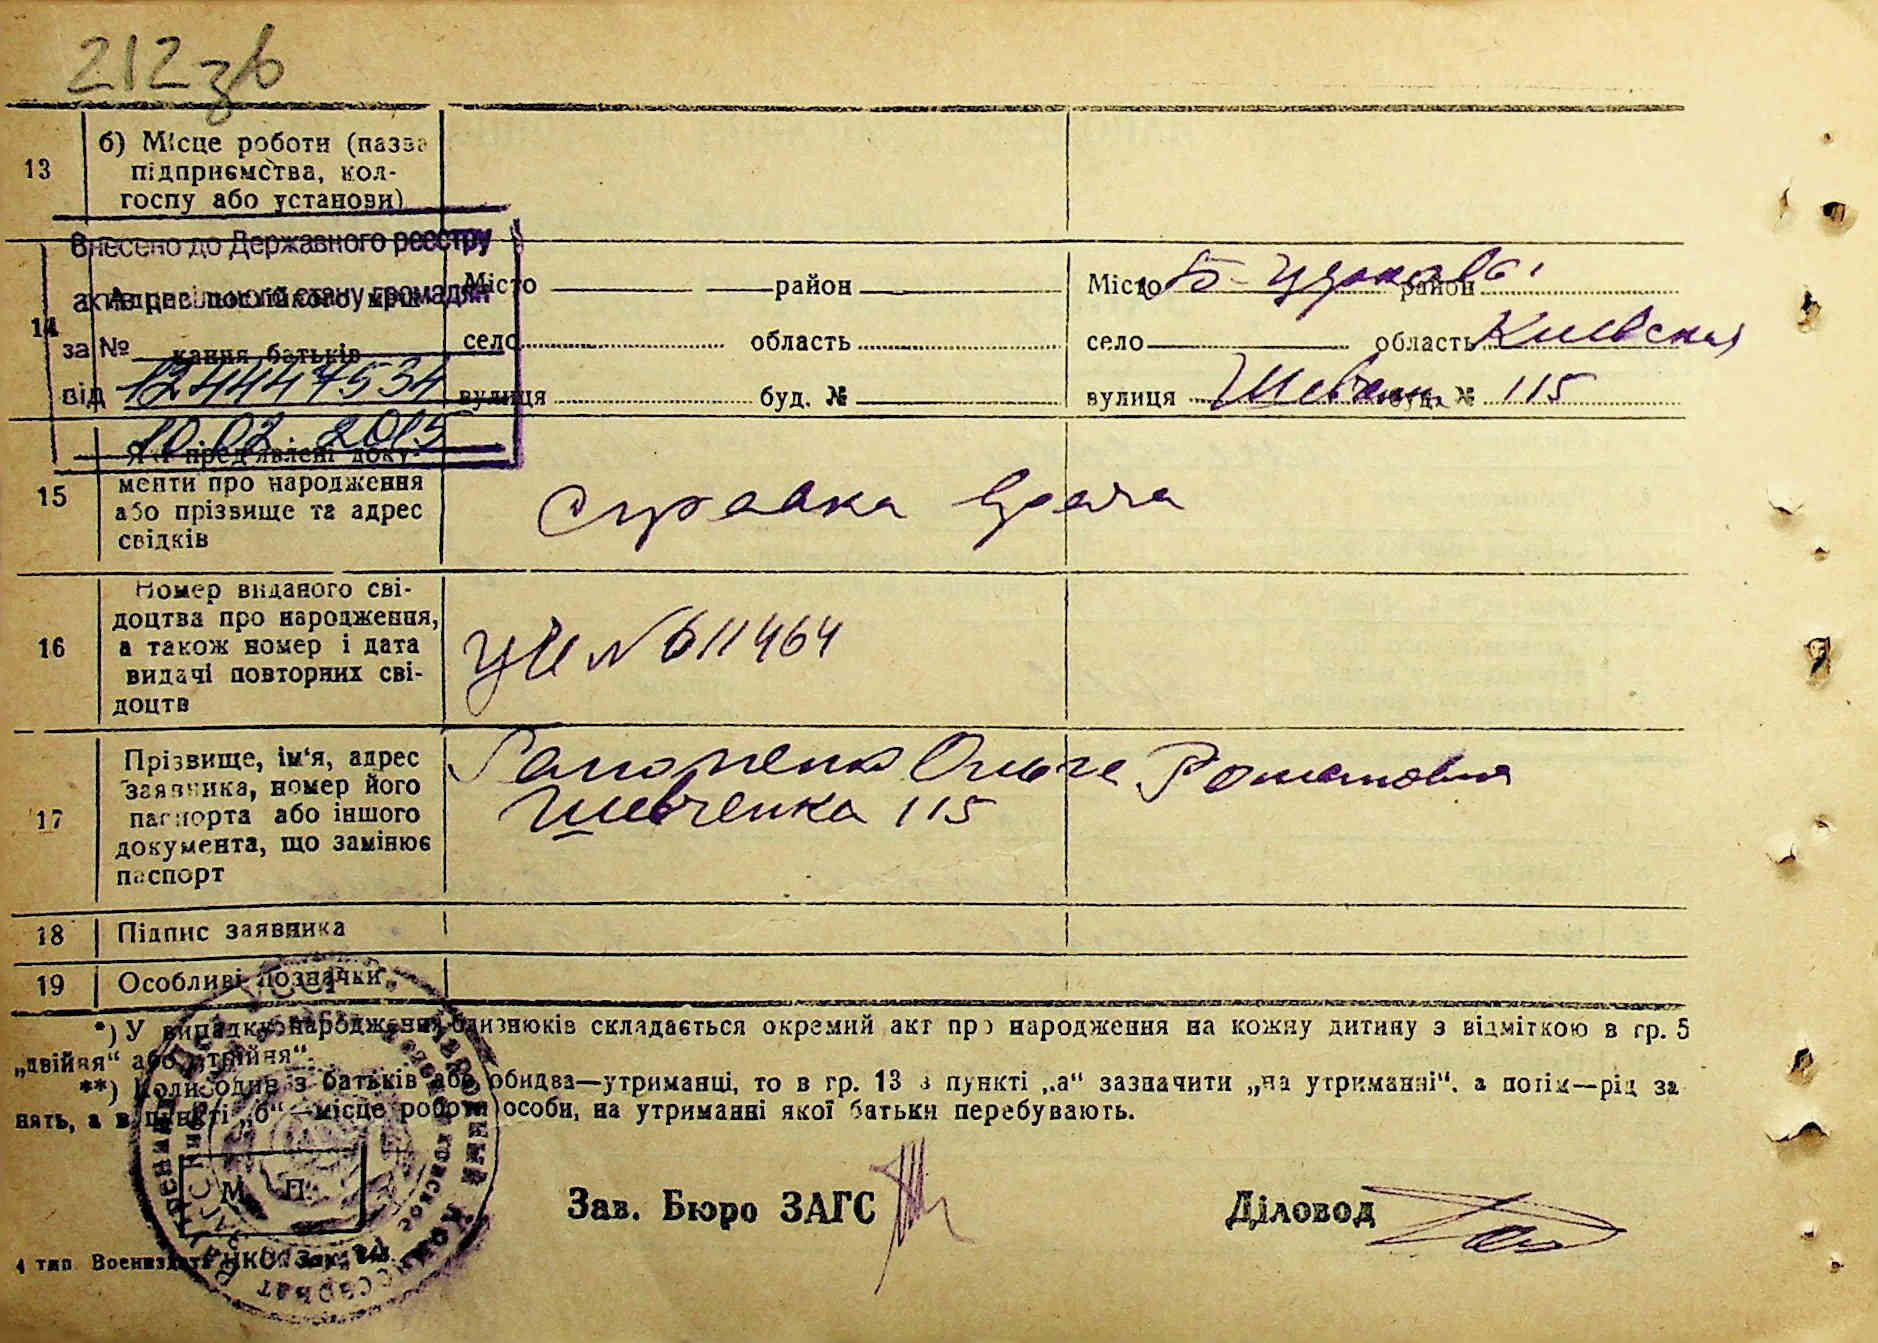 212зв
13 б) Місце роботи (назва
підприємства, кол-
госпу або установи)
Внесено до Державного реєстру
актів цивільного стану громадян
за №
від 12444 7534
10.02.2015
14
кання батьків
Місто район
село область
вулиця буд. №
Місто Б-Церковь район
село область Киевская
вулиця Шевченка буд. № 115
15 Які пред'явлені доку-
менти про народження
або прізвище та адрес
свідків
Справка врача
16 Номер виданого сві-
доцтва про народження,
а також номер і дата
видачі повторних сві-
доцтв
№ 611464
17 Прізвище, ім'я, адрес
заявника, номер його
паспорта або іншого
документа, що замінює
паспорт
Ольга Романовна
Шевченка 115
18 Підпис заявника
19 Особливі позначки
*) У випадку народження близнюків складається окремий акт про народження на кожну дитину з відміткою в гр. 5
„двійня“ або „трійня“.
**) Коли один з батьків або обидва—утриманці, то в гр. 13 в пункті „а“ зазначити „на утриманні“, а потім—рід за
нять, а в пункті „б“—місце роботи особи, на утриманні якої батьки перебувають.
М. П.
Зав. Бюро ЗАГС
Діловод
4 тип. Воениздата НКО. Зак.